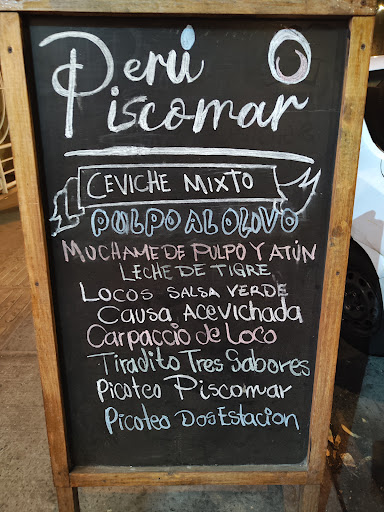 Perú
Piscomar
CEVICHE MIXTO
PULPO AL OLIVO
MUCHAME DE PULPO Y ATÚN
LECHE DE TIGRE
LOCOS SALSA VERDE
CAUSA ACEVICHADA
Carpaccio de Loco
Tiradito Tres Sabores
Picoteo Piscomar
Picoteo DosEstacion